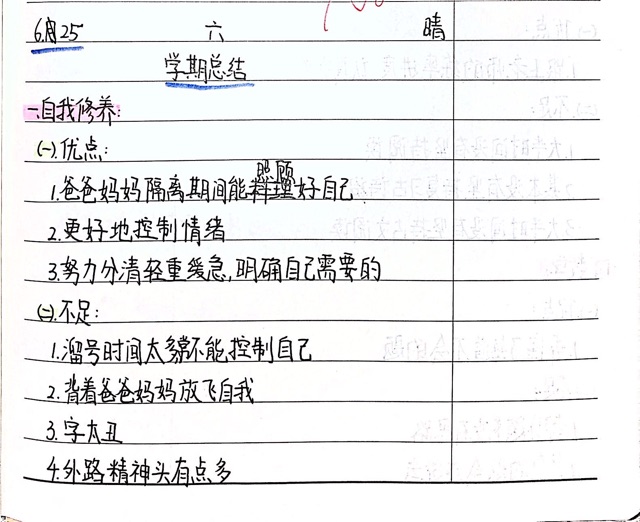 6月25 六 晴
学期总结
一.自我修养:
(一).优点:
1.爸爸妈妈隔离期间能照顾好自己
2.更好地控制情绪
3.努力分清轻重缓急,明确自己需要的
(二).不足:
1.溜号时间太多,不能控制自己
2.背着爸爸妈妈放飞自我
3.字太丑
4.外路精神头有点多